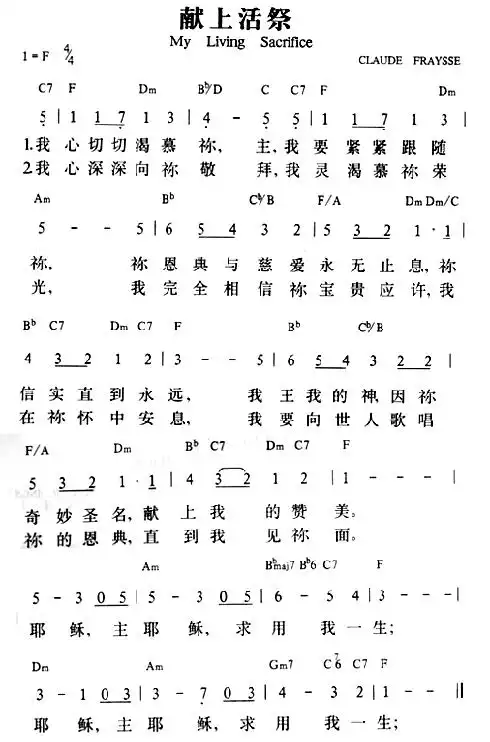 献上活祭
My Living Sacrifice
1=F 4/4
CLAUDE FRAYSSE
C7 F Dm Bb/D C C7 F Dm
5 | 1 1 7 1 3 | 4 - 5 5 | 1 1 7 1 3 |
1.我 心 切 切 渴 慕 祢, 主, 我 要 紧 紧 跟 随
2.我 心 深 深 向 祢 敬 拜, 我 灵 渴 慕 祢 荣
Am Bb C/B F/A Dm Dm/C
5 - - 5 | 6 5 4 3 2 | 5 3 2 1 · 1 |
祢. 祢 恩 典 与 慈 爱 永 无 止 息, 祢
光, 我 完 全 相 信 祢 宝 贵 应 许, 我
Bb C7 Dm C7 F Bb C/B
4 3 2 1 2 | 3 - - 5 | 6 5 4 3 2 2 |
信 实 直 到 永 远, 我 王 我 的 神, 因 祢
在 祢 怀 中 安 息, 我 要 向 世 人 歌 唱
F/A Dm Bb C7 Dm C7 F
5 3 2 1 · 1 | 4 3 2 1 2 | 1 - - - |
奇 妙 圣 名, 献 上 我 的 赞 美。
祢 的 恩 典, 直 到 我 见 祢 面。
Am Bbmaj7 Bb6 C7 F
5 - 3 0 5 | 5 - 3 0 5 | 6 - 5 4 | 3 - - - |
耶 稣, 主 耶 稣, 求 用 我 一 生;
Dm Am Gm7 C7 6 C7 F
3 - 1 0 3 | 3 - 7 0 3 | 4 - 3 2 | 1 - - ‖
耶 稣, 主 耶 稣, 求 用 我 一 生;